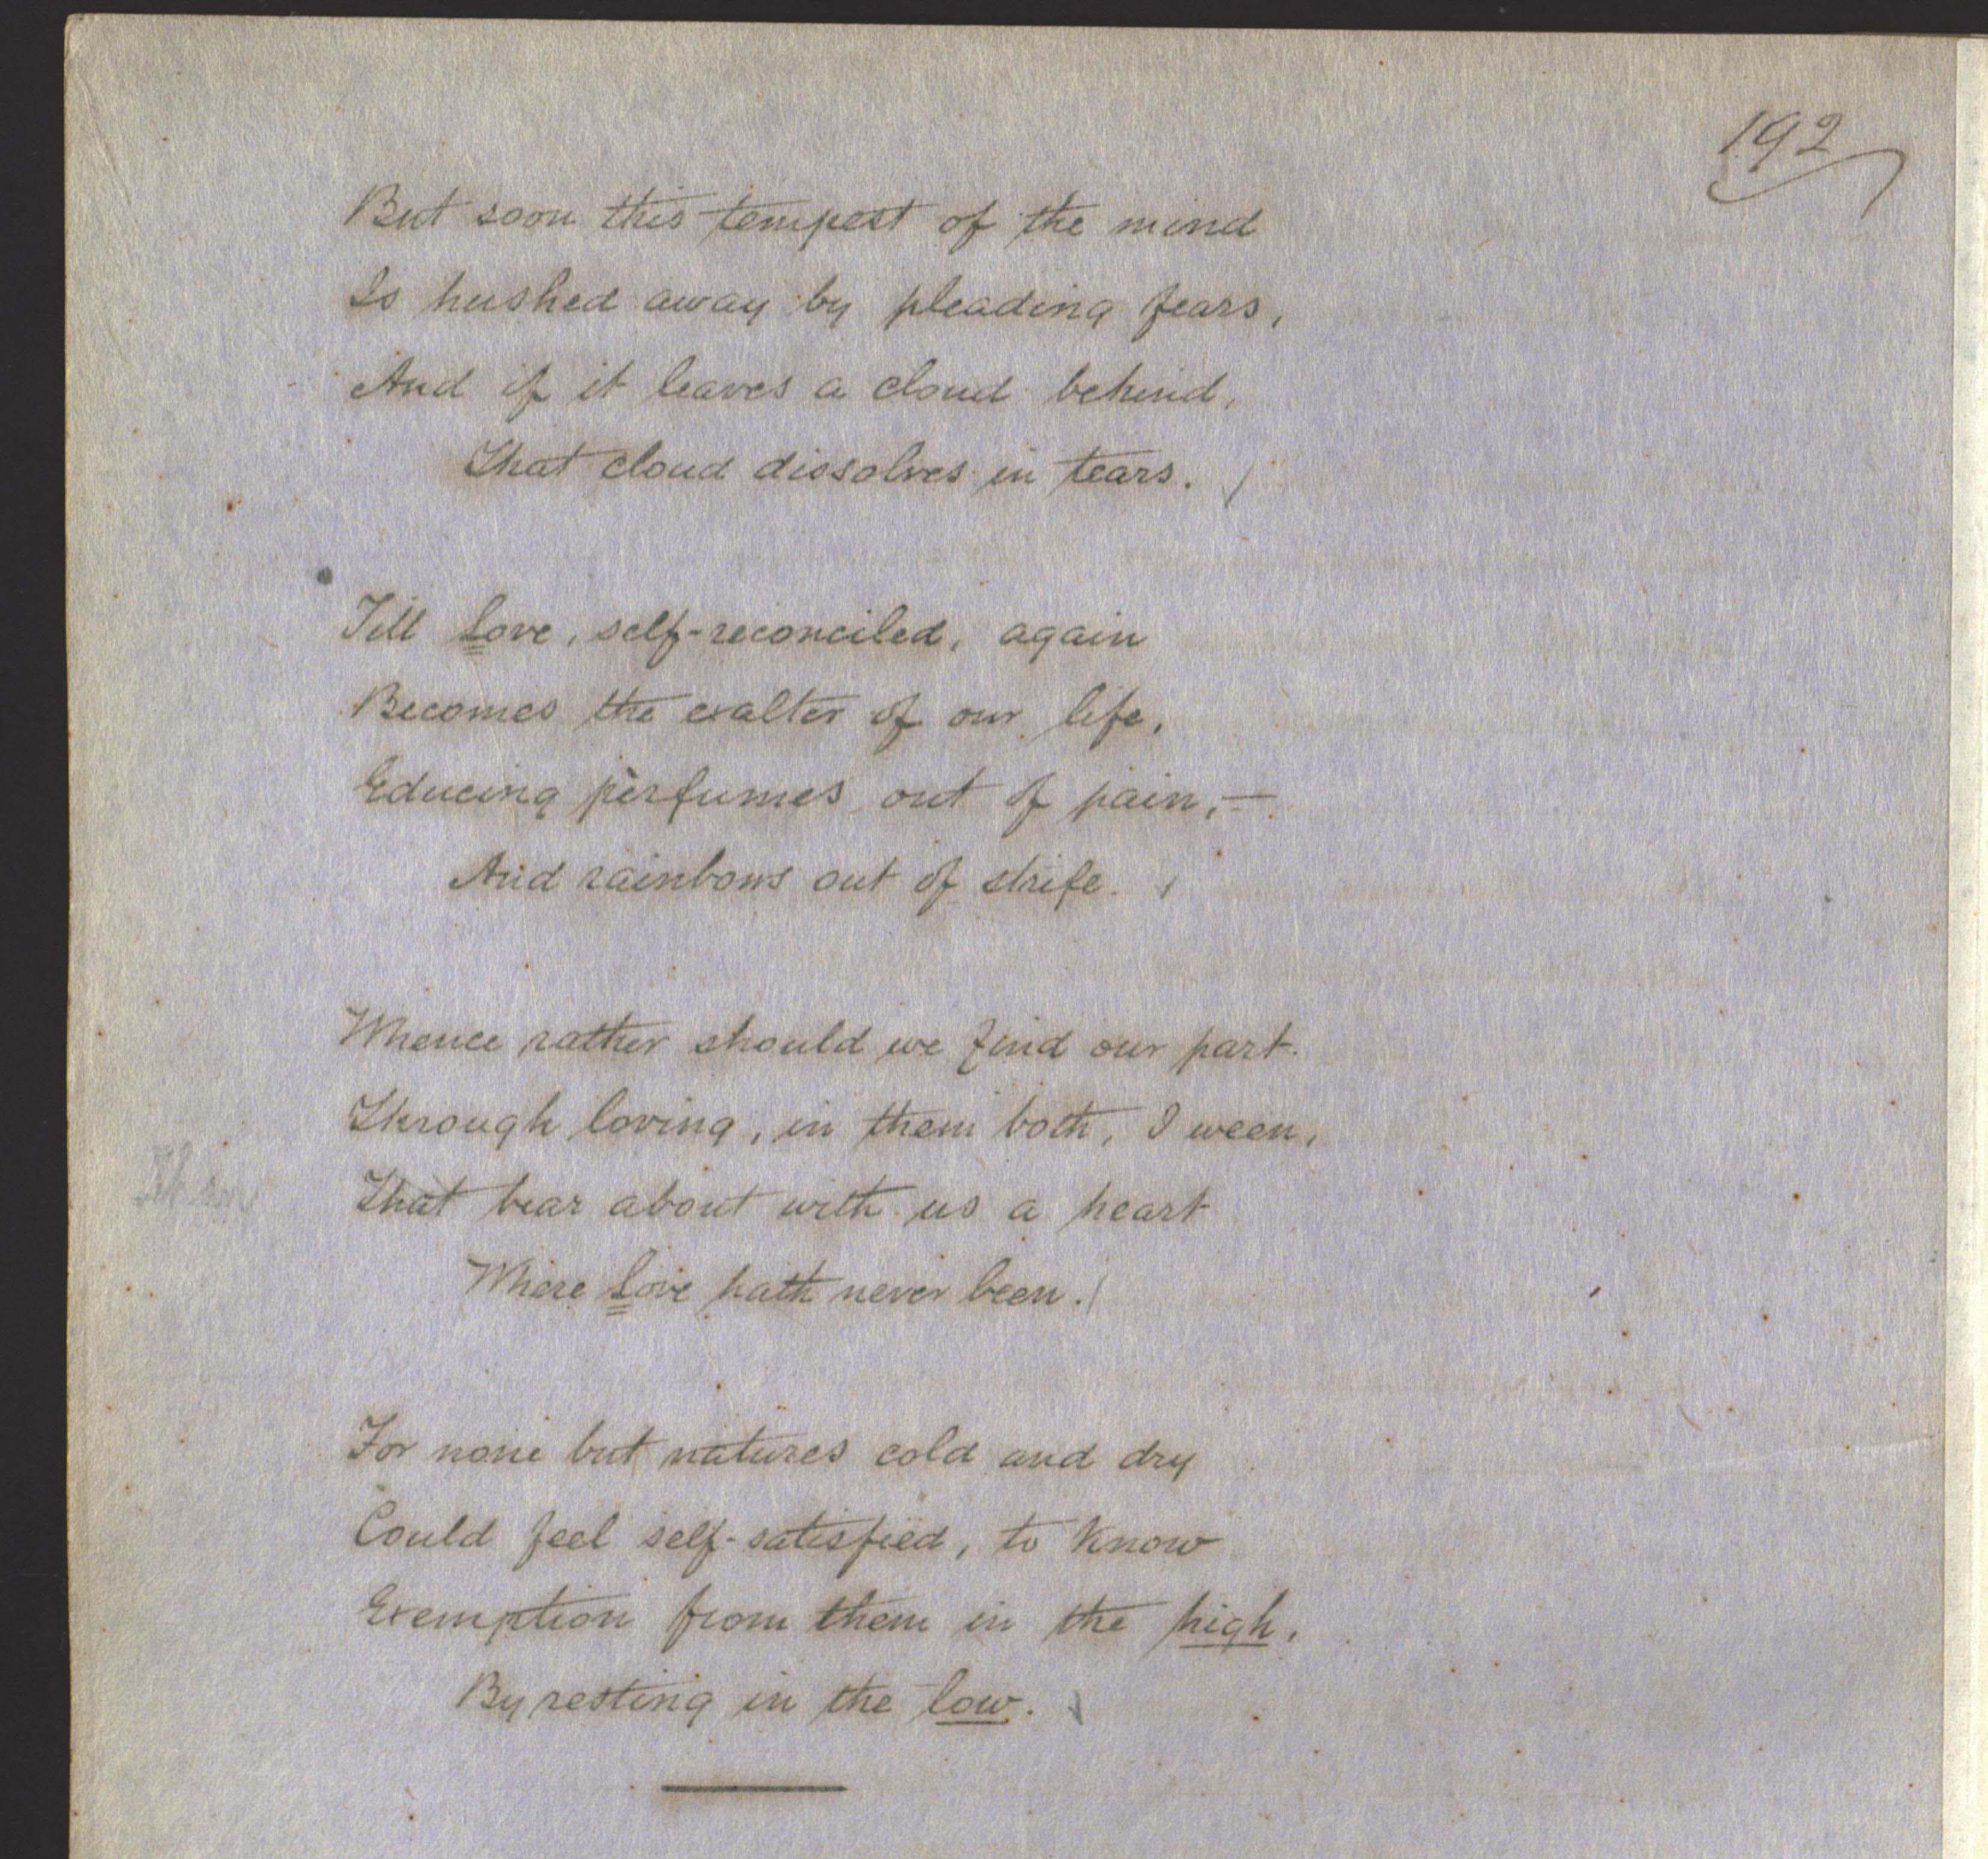 192
But soon this tempest of the mind
Is hushed away by pleading fears,
And if it leaves a cloud behind,
That cloud dissolves in tears.
Till Love, self-reconciled, again
Becomes the exalter of our life,
Educing perfumes out of pain,—
And rainbows out of strife.
Whence rather should we find our part
Through loving, in them both, I ween,
That bear about with us a heart
Where Love hath never been.
For none but natures cold and dry
Could feel self-satisfied, to know
Exemption from them in the high,
By resting in the low.